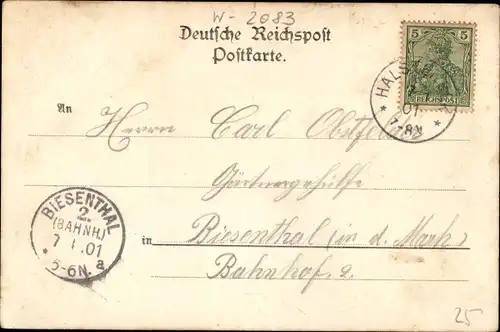 W-2083
Deutsche Reichspost
Postkarte.
5 5
REICHSPOST
01
7-8V
An
Herrn Carl
Gärtnergehülfe
in Biesenthal (in d. Mark)
Bahnhof 2.
BIESENTHAL
2
(BAHNH.)
7 1.01
* 5-6N. a
25